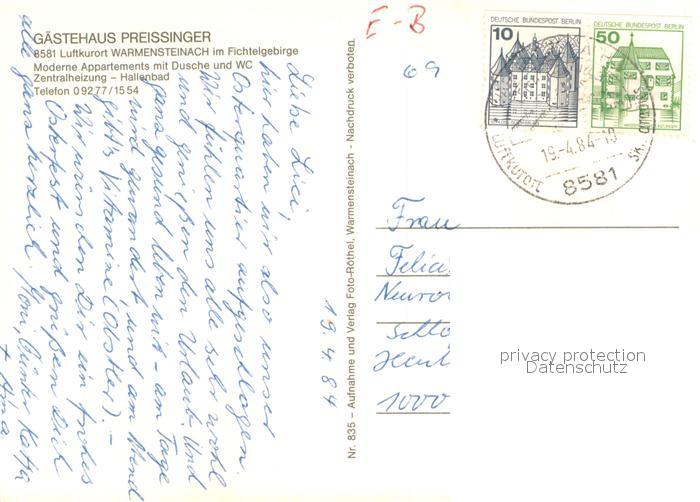 GÄSTEHAUS PREISSINGER
8581 Luftkurort WARMENSTEINACH im Fichtelgebirge
Moderne Appartements mit Dusche und WC
Zentralheizung – Hallenbad
Telefon 0 92 77 / 15 54
19.4.84
Liebe Luci,
hier haben wir also unser
Osterquartier aufgeschlagen.
Wir fühlen uns alle sehr wohl
und genießen den Urlaub. Und
ganz gesund leben wir - am Tage
wird gewandert und am Abend
gibt's Vitamine (Obstler). –
Wir wünschen Dir ein frohes
Osterfest und grüßen Dich
alle ganz herzlich, Günter Katja
+
Nr. 835 – Aufnahme und Verlag Foto-Röthel, Warmensteinach - Nachdruck verboten.
E-B
69
DEUTSCHE BUNDESPOST BERLIN
10
DEUTSCHE BUNDESPOST BERLIN
50
19.-4.84-19
Luftkurort
8581
Frau
Felici
1000
privacy protection
Datenschutz